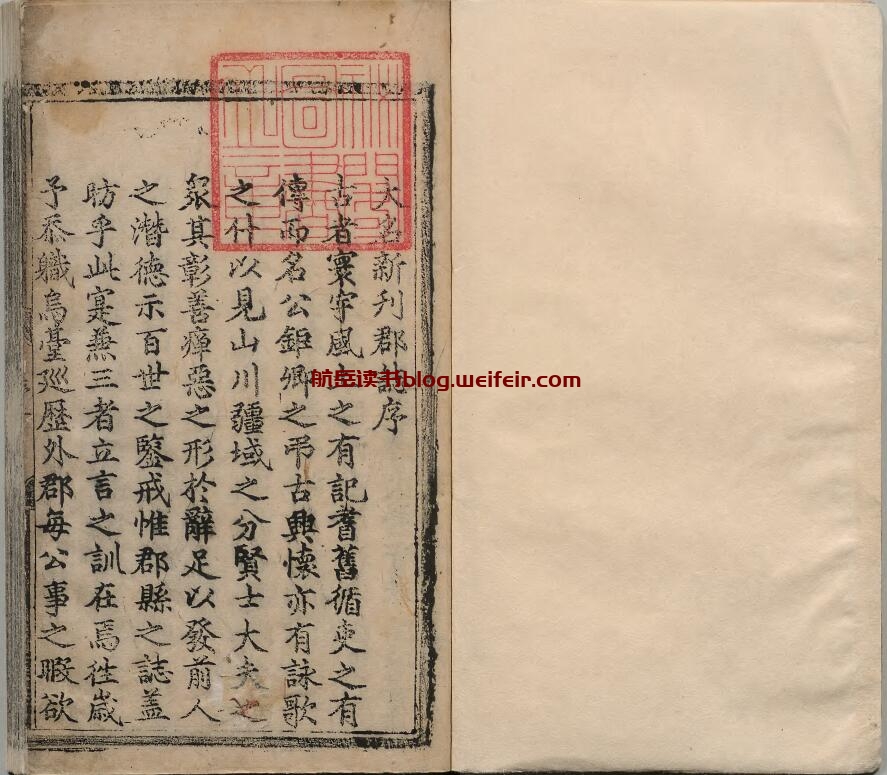 大名新刊郡誌序
古者寰宇風土之有記耆舊循吏之有
傳而名公鉅卿之弔古興懷亦有詠歌
之什以見山川疆域之分賢士大夫之
衆其彰善癉惡之形於辭足以發前人
之潛德示百世之鑒戒惟郡縣之誌蓋
昉乎此寔兼三者立言之訓在焉徃歲
予忝職烏臺廵歷外郡每公事之暇欲
航空读书blog.weifeir.com